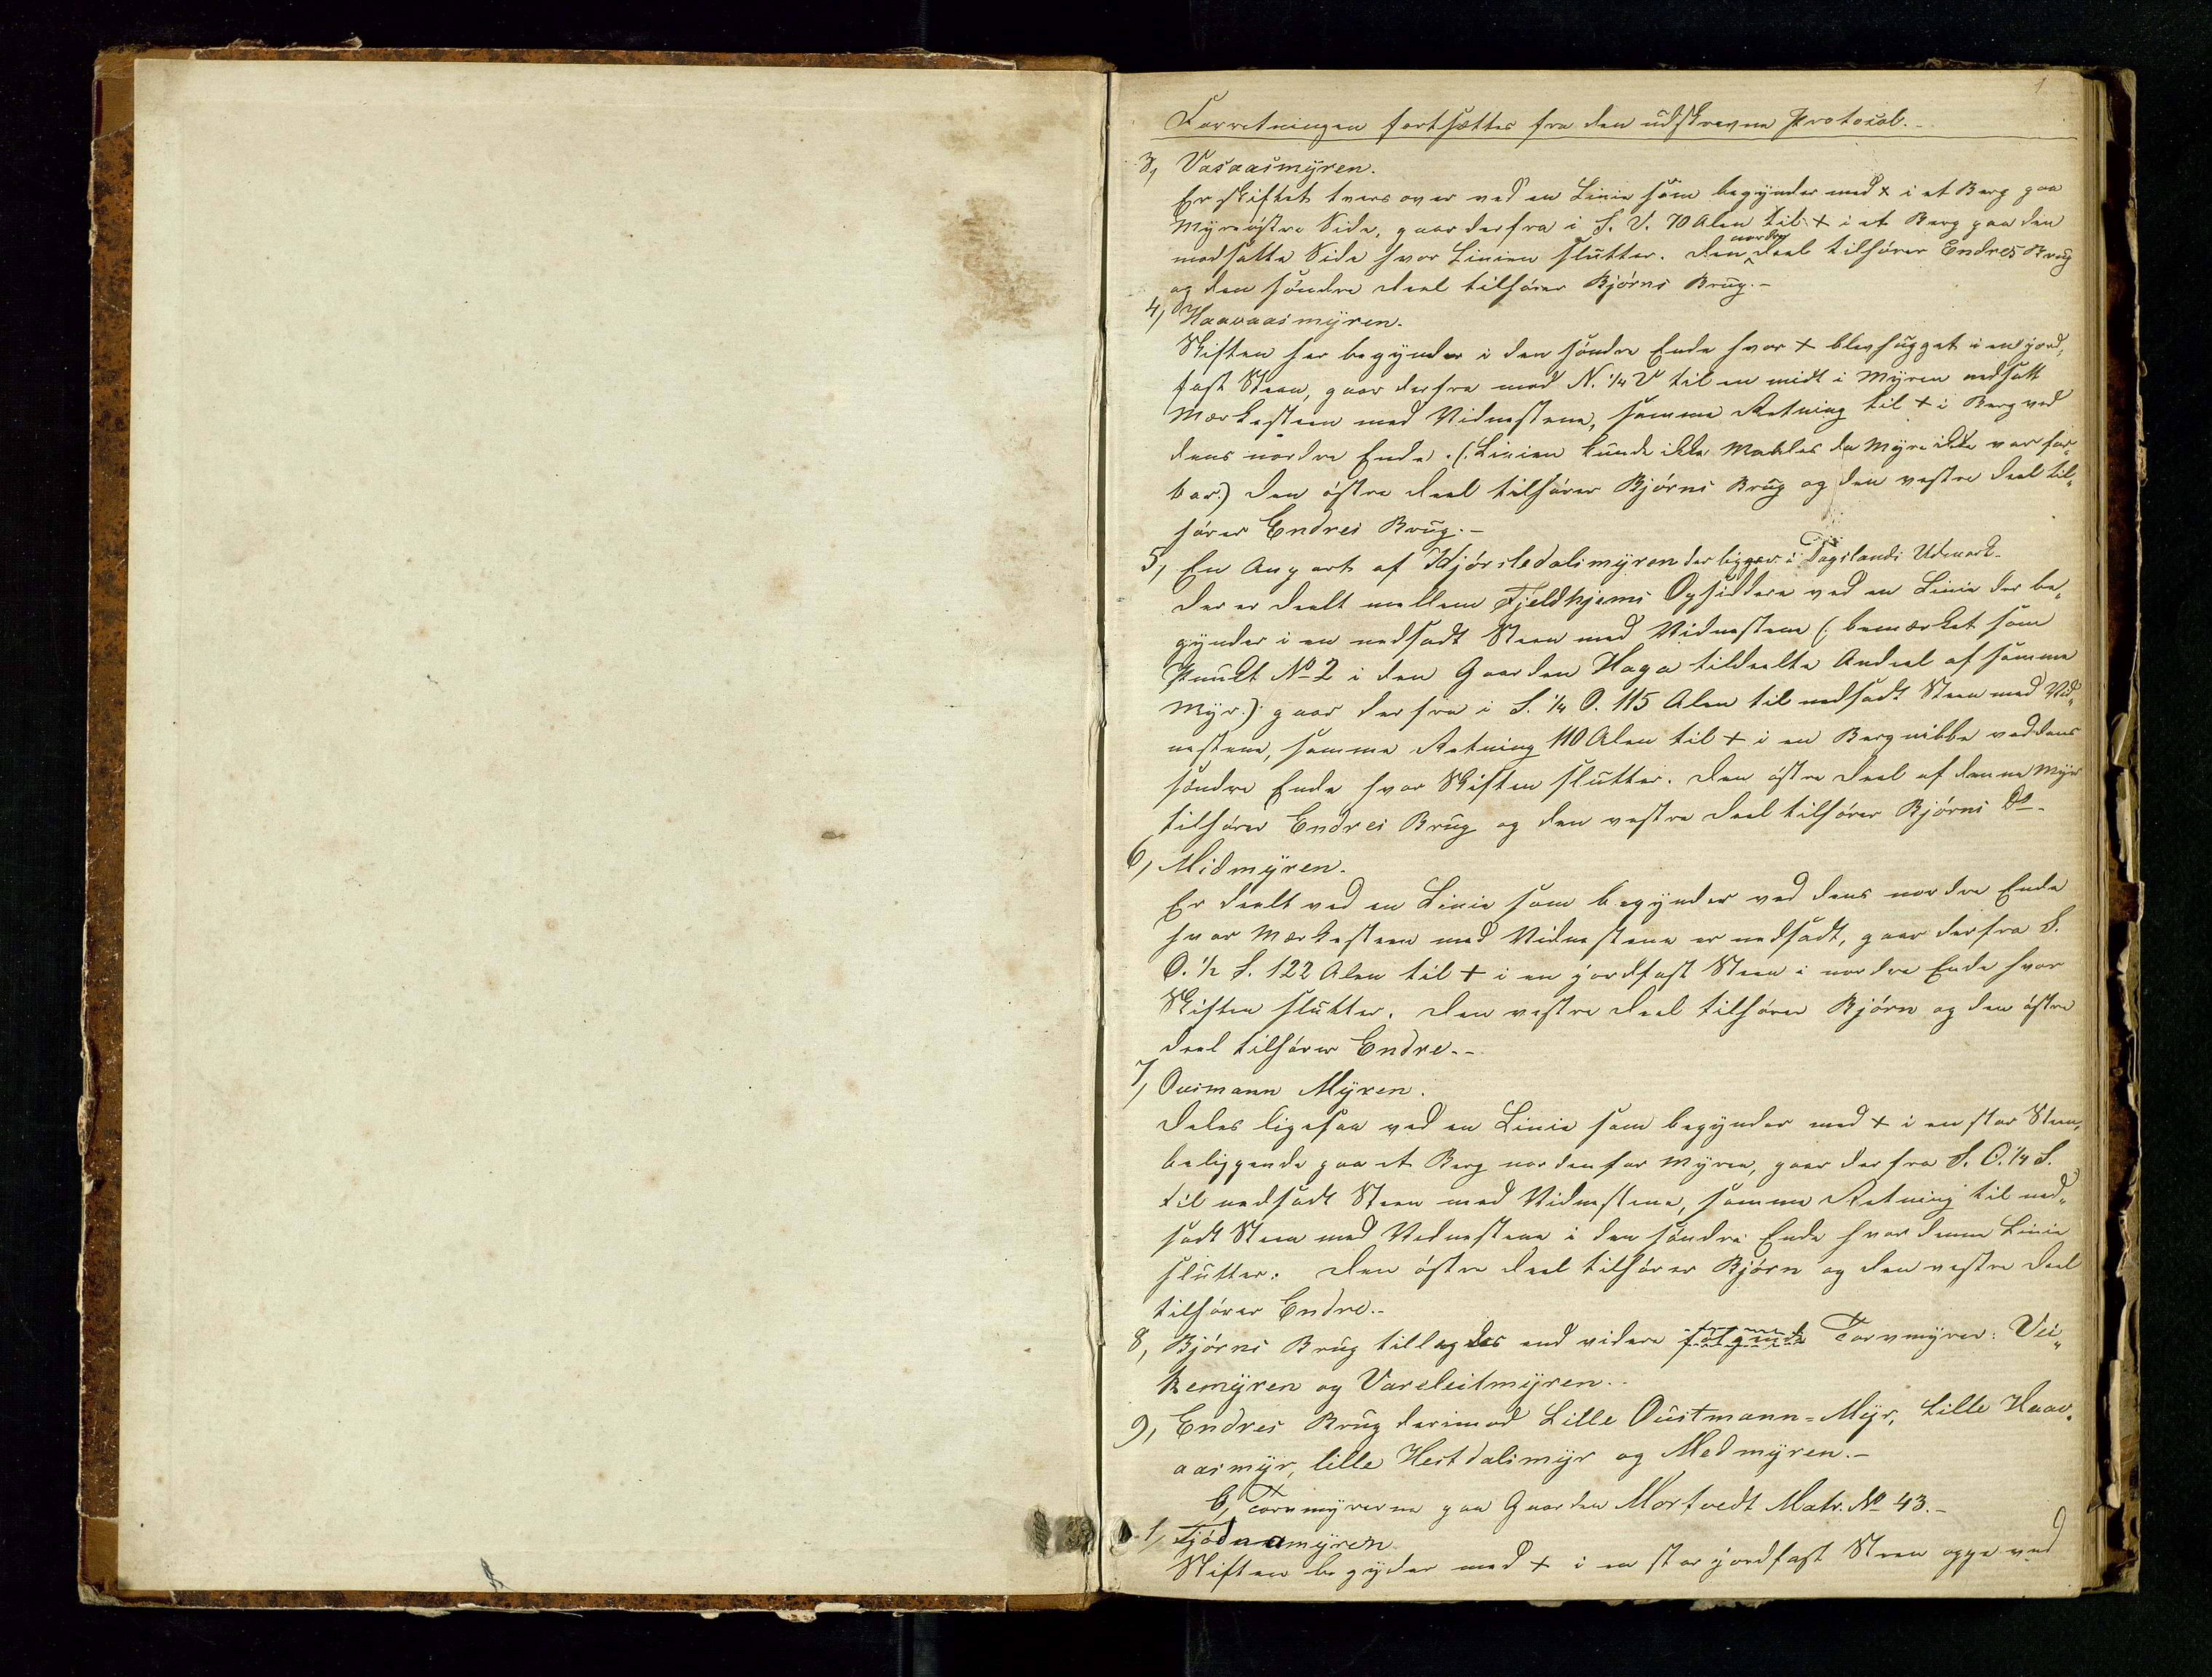 1
Forretningen fortsættes fra den udskrevne Protocol.-
3, Vasaasmyren.
Er skiftet tvers over ved en Linie som begynder med + i et Berg paa
Myrsöstre Side, gaar derfra i S. V. 70 Alen til + i et Berg paa den
modsatte Side hvor Linien slutter. Den nordre Deel tilhører Endres Brug
og den søndre Deel tilhører Bjørns Brug.-
4, Haavaasmyren.
Skiften her begynder i den søndre Ende hvor + blev hugget i en jord,
fast Steen, gaar derfra mod N. 1/4 V til en midt i Myren nedsatt
Mærkesteen med Vidnestene, samme Retning til + i Berg ved
dens nordre Ende. (: Linien kunde ikke maales da Myr ikke var far„
bar.) Den østre Deel tilhører Bjørns Brug og den vestre Deel til„
hører Endres Brug.-
5, En Anpart af Kjørsledalsmyren der ligger i Dagslands Udmark.
Der er deelt mellem Fjeldhjems Opsiddere ved en Linie der be„
gynder i en nedsadt Steen med Vidnestene (: bemærket som
Punkt No 2 i den Gaarden Haga tildeelte Andeel af samme
Myr.): gaar derfra i S. 1/4 O. 115 Alen til nedsadt Steen med Vid„
nestene, samme Retning 110 Alen til + i en Bergnibbe ved dens
søndre Ende hvor Skiften slutter. Den østre Deel af denne Myr
tilhører Endres Brug og den vestre Deel tilhører Bjørns Do.-
6, Midmyren.
Er deelt ved en Linie som begynder ved dens nordre Ende
hvor Mærkesteen med Vidnestene er nedsadt, gaar derfra S.
O. 1/2 S. 122 Alen til + i en jordfast Steen i nordre Ende hvor
Skiften slutter. Den vestre Deel tilhører Bjørn og den østre
Deel tilhører Endre.-
7, Ousmann Myren.
Deles ligesaa ved en Linie som begynder med + i en stor Steen,
beliggende paa et Berg nordenfor Myren, gaar derfra S. O. 1/4 S.
til nedsadt Steen med Vidnestene, samme Retning til ned„
sadt Steen med Vidnestene i den søndre Ende hvor denne Linie
slutter. Den østre Deel tilhører Bjørn og den vestre Deel
tilhører Endre.-
8, Bjørns Brug tillagdes end videre følgende Torvmyrer: Vei„
kemyren og Varsleitmyren.-
9, Endres Brug derimod Lille Oustmann=Myr, Lille Haav„
aasmyr, lille Hestdalsmyr og Medmyren.-
6, Torvmyrerne paa Gaarden Mortvedt Matr. No 43.-
1, Tjødnamyren
Skiften begyder med + i en stor jordfast Steen oppe ved